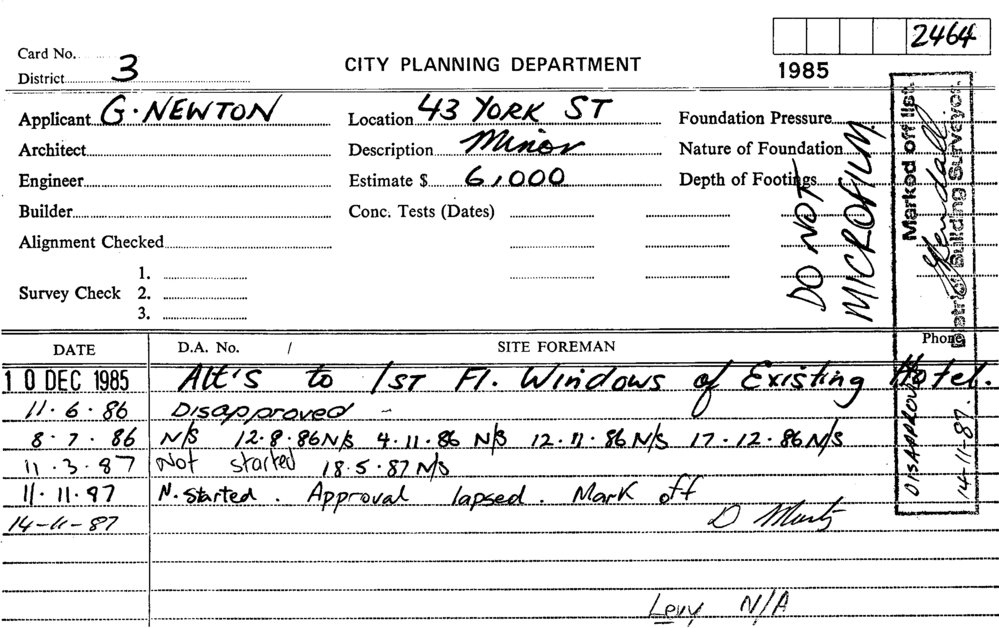 2464
Card No.
District 3
CITY PLANNING DEPARTMENT
1985
Applicant G. NEWTON
Location 43 YORK ST
Foundation Pressure
Architect
Description Minor
Nature of Foundation
Engineer
Estimate $ 6,000
Depth of Footings
Builder
Conc. Tests (Dates)
Alignment Checked
Survey Check
1.
2.
3.
DO NOT
MICROFILM.
Marked off list.
District Building Surveyor.
DISAPPROVED
14-11-87.
DATE
D.A. No. /
SITE FOREMAN
Phone
10 DEC 1985 Alt's to 1ST Fl. Windows of Existing Hotel.
11.6.86 Disapproved -
8.7.86 N/S 12.8.86 N/S 4.11.86 N/S 12.11.86 N/S 17.12.86 N/S
11.3.87 Not started 18.5.87 N/S
11.11.87 N.started. Approval lapsed. Mark off
14-11-87 D
Levy N/A